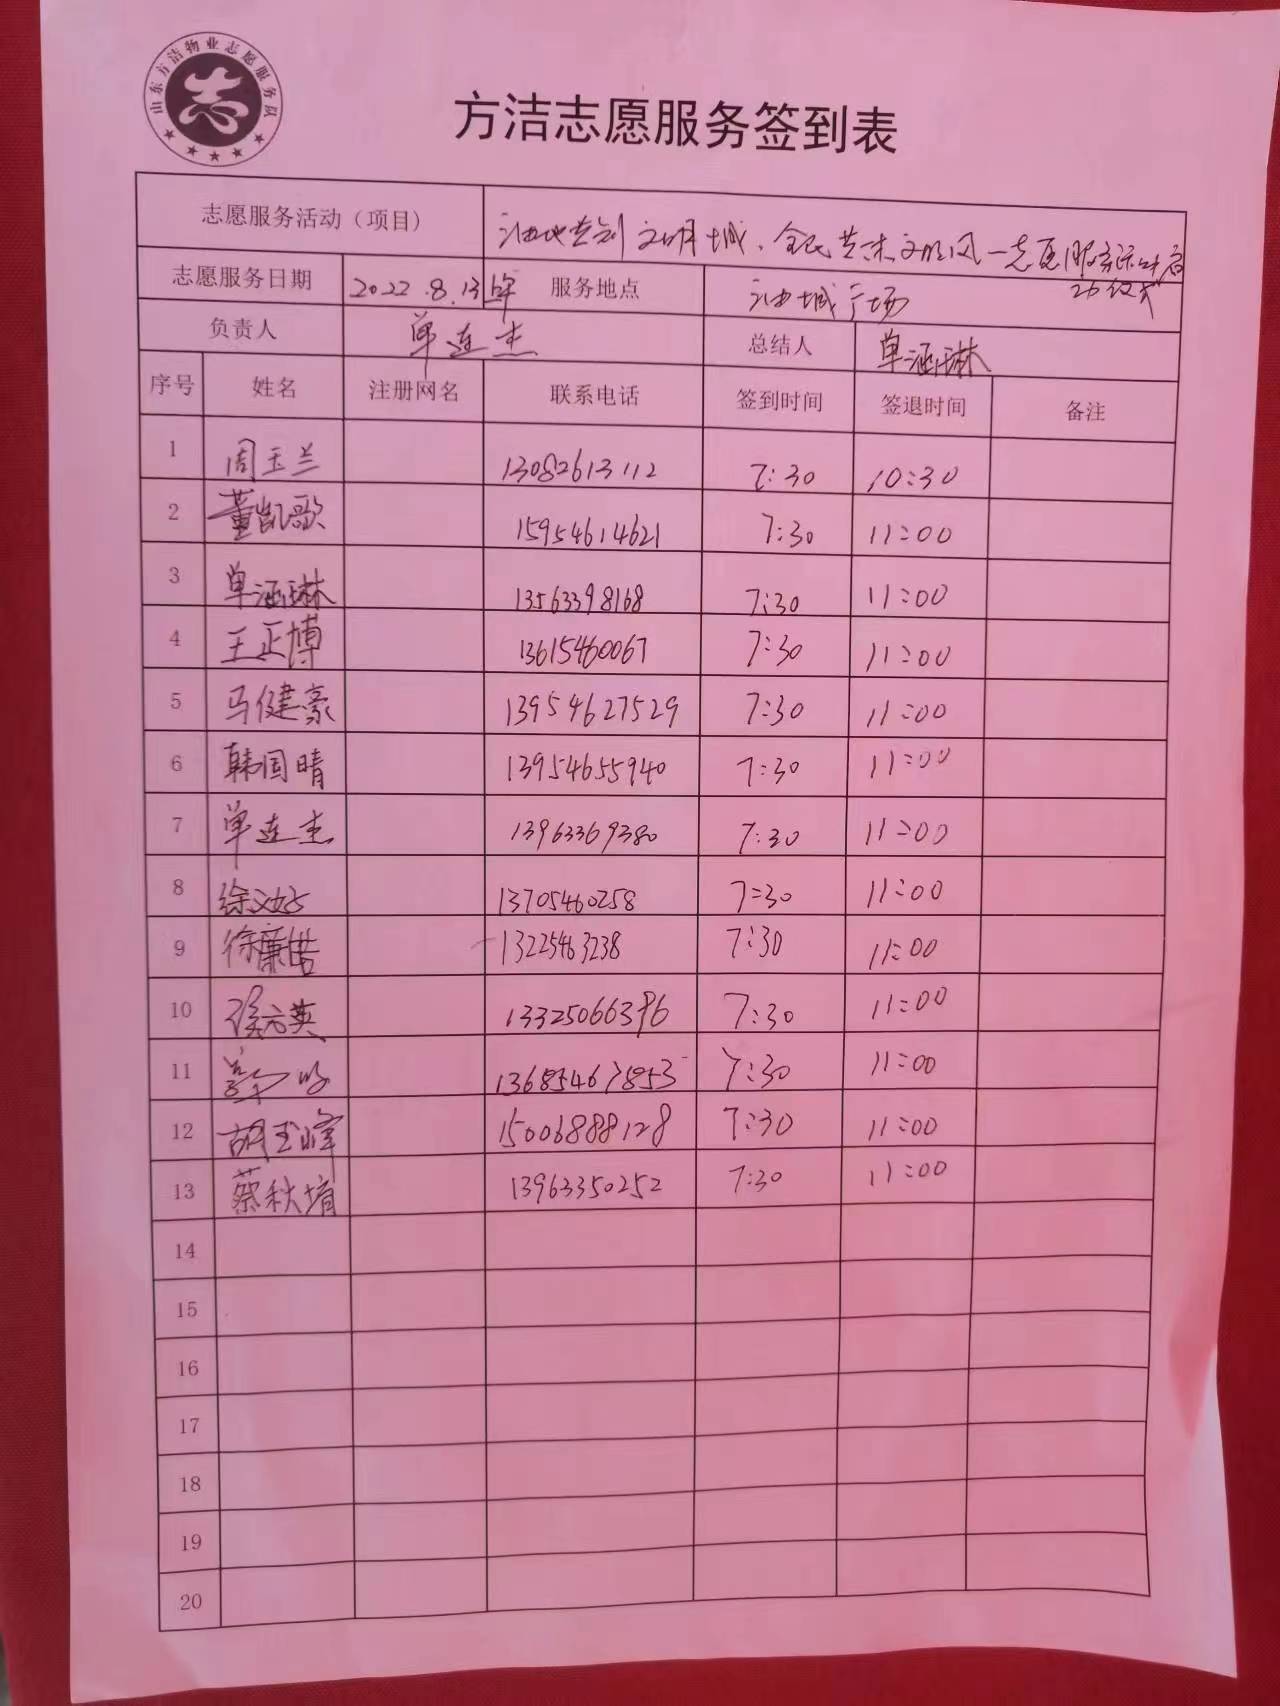 山东方洁物业志愿服务队
志
方洁志愿服务签到表
志愿服务活动（项目） 油地共创文明城、全民共沐文明风一志愿服务活动启动仪式
志愿服务日期 2022.8.13 服务地点 油城广场
负责人 单连杰 总结人 单涵琳
序号 姓名 注册网名 联系电话 签到时间 签退时间 备注
1 周玉兰 13082613112 7:30 10:30
2 董凯歌 15954614621 7:30 11:00
3 单涵琳 13563398168 7:30 11:00
4 王正博 13615460067 7:30 11:00
5 马健豪 13954627529 7:30 11:00
6 韩国晴 13954655940 7:30 11:00
7 单连杰 13963369380 7:30 11:00
8 徐文好 13705460258 7:30 11:00
9 徐廉皓 13225463238 7:30 11:00
10 侯方英 13325066396 7:30 11:00
11 13685467853 7:30 11:00
12 胡玉峰 15006888128 7:30 11:00
13 蔡秋堉 13963350252 7:30 11:00
14
15
16
17
18
19
20